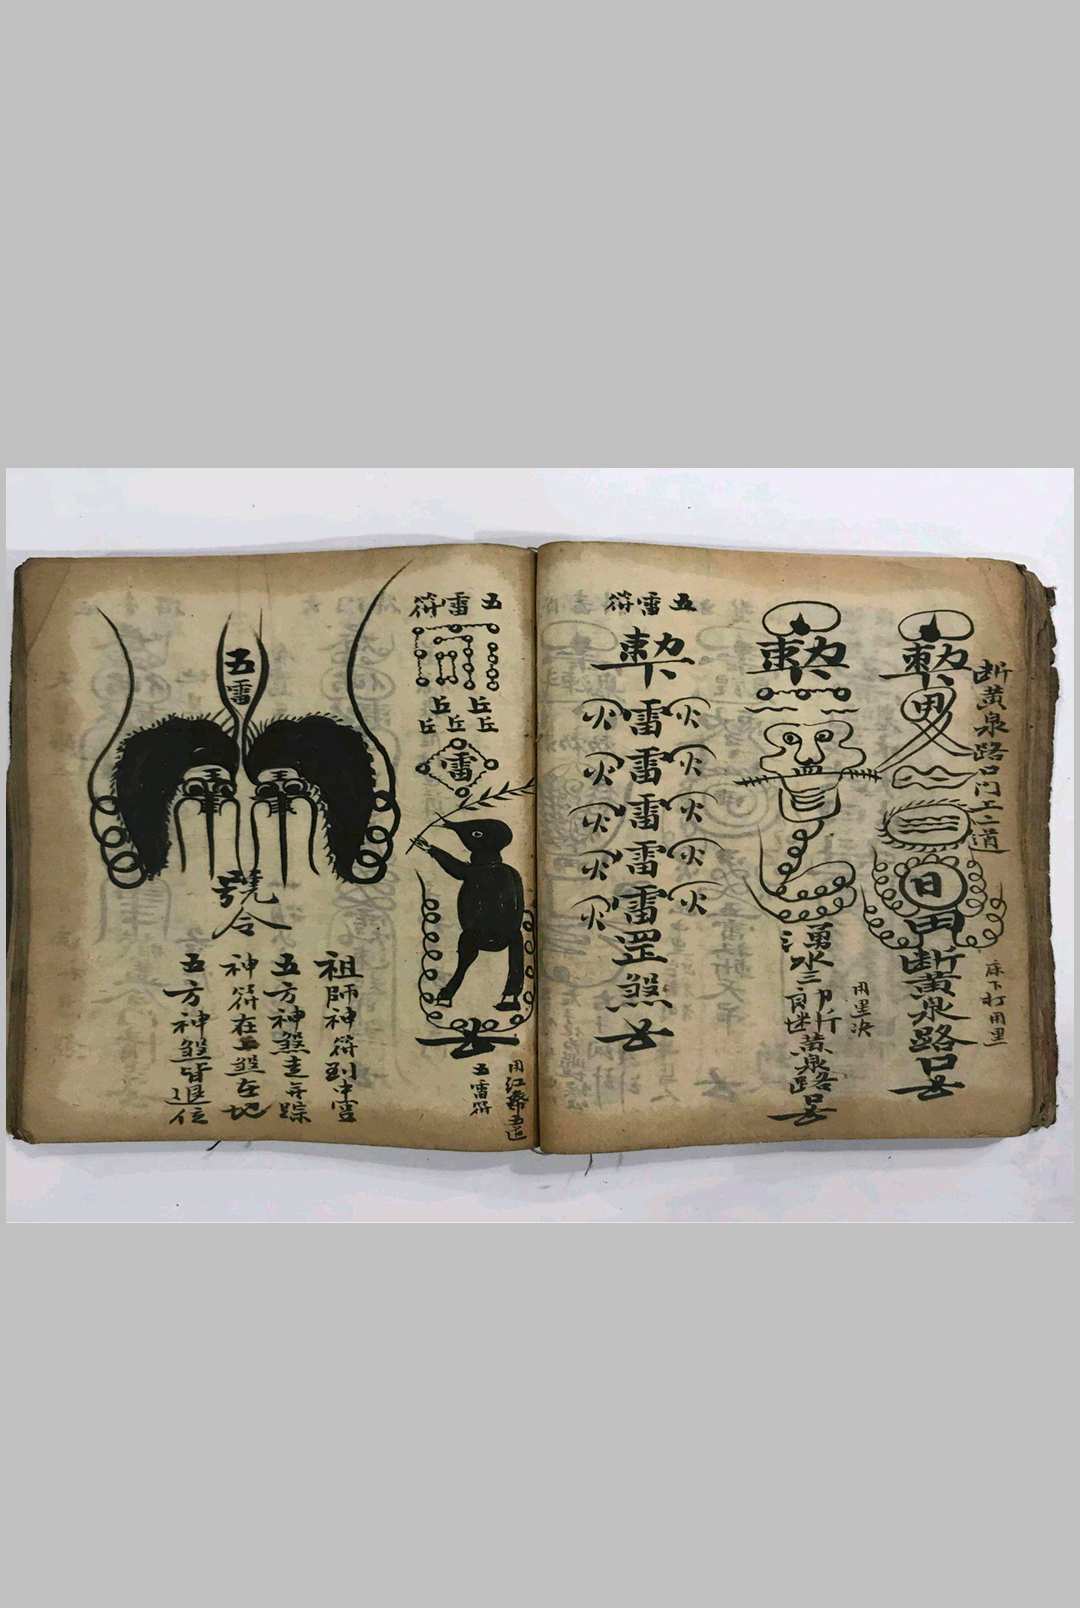 断黄泉路口門二道
勅
日
断黄泉路口
床下打用里
勅
湧水三郎断黄泉路口
用里决
五雷符
勅
火雷火
火雷火
火雷火
火雷火
火雷火
罡
煞
五雷符
雷
用紅
五道
五雷符
五雷
號令
祖師神符到中宫
五方神煞走無踪
神符在煞在地
五方神煞皆退位